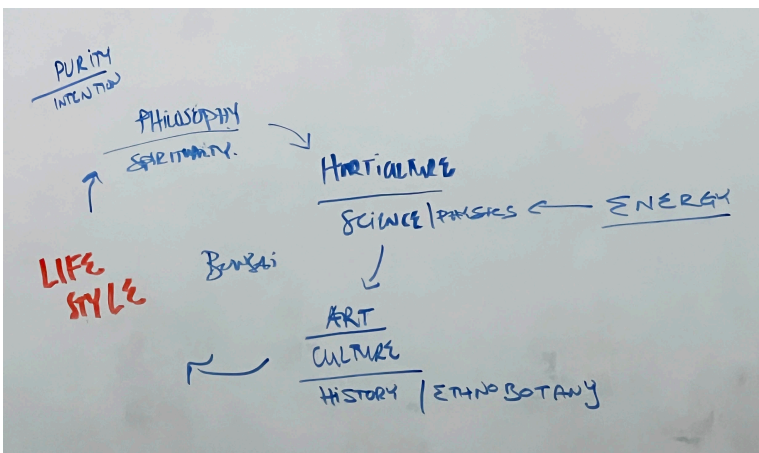 PURITY
INTENTION
PHILOSOPHY
SPIRITUALITY.
HORTICULTURE
SCIENCE/PHYSICS
ENERGY
LIFE
STYLE
BONSAi
ART
CULTURE
HISTORY / ETHNOBOTANY